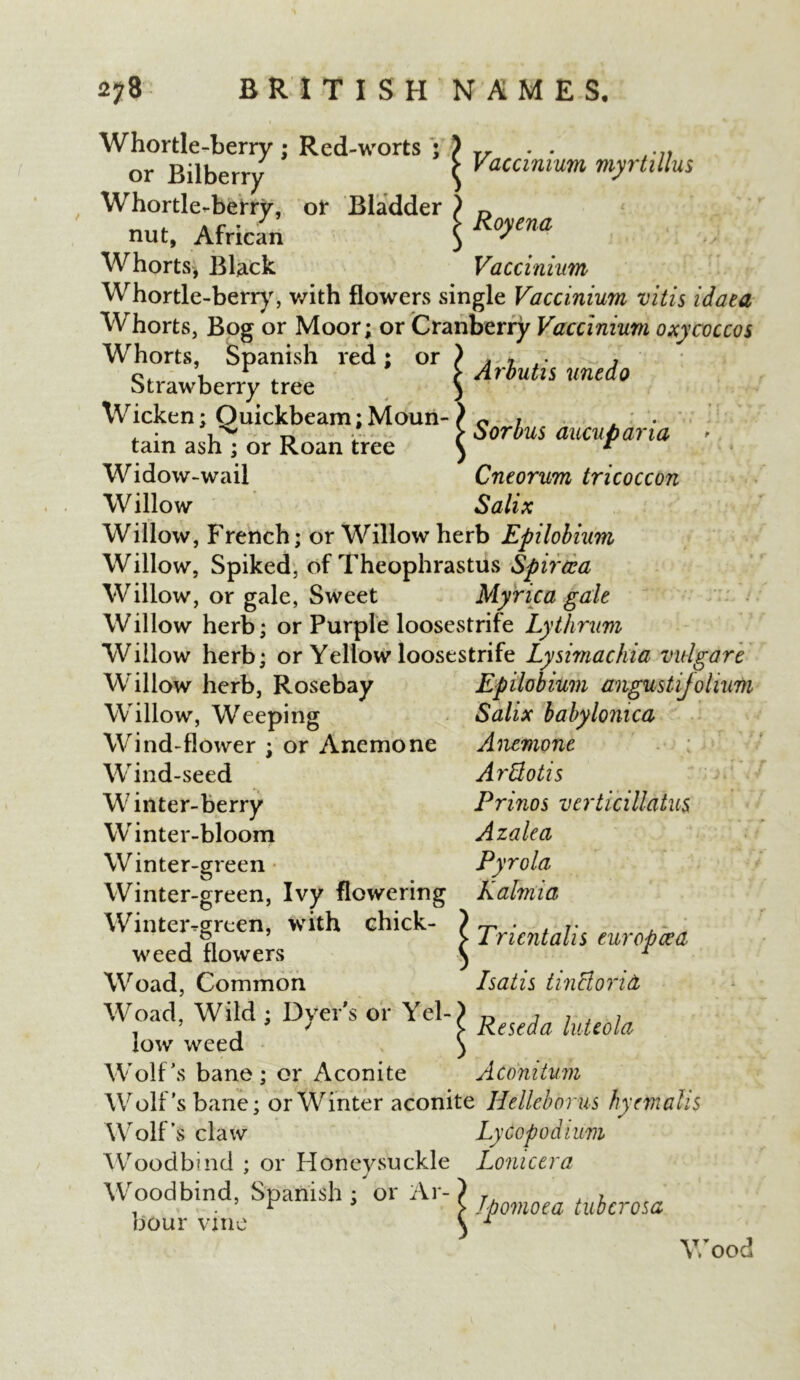 278 BRITISH NAMES.
Whortle-berry ; Red-worts ; } Vaccinium myrtillus
or Bilberry
Whortle-berry, or Bladder } Royena
nut, African
Whorts, Black Vaccinium
Whortle-berry, with flowers single Vaccinium vitis idaea
Whorts, Bog or Moor; or Cranberry Vaccinium oxycoccos
Whorts, Spanish red; or } Arbutis unedo
Strawberry tree
Wicken; Quickbeam; Moun- } Sorbus aucuparia
tain ash ; or Roan tree
Widow-wail Cneorum tricoccon
Willow Salix
Willow, French; or Willow herb Epilobium
Willow, Spiked, of Theophrastus Spiræa
Willow, or gale, Sweet Myrica gale
Willow herb; or Purple loosestrife Lythrum
Willow herb; or Yellow loosestrife Lysimachia vulgare
Willow herb, Rosebay Epilobium angustifolium
Willow, Weeping Salix babylonica
Wind-flower ; or Anemone Anemone
Wind-seed Arctotis
Winter-berry Prinos verticillatus
Winter-bloom Azalea
Winter-green Pyrola
Winter-green, Ivy flowering Kalmia
Winter-green, with chick- } Trientalis europæa
weed flowers
Woad, Common Isatis tinctoria
Woad, Wild ; Dyer's or Yel- } Reseda luteola
low weed
Wolf's bane; or Aconite Aconitum
Wolf's bane; or Winter aconite Helleborus hyemalis
Wolf's claw Lycopodium
Woodbind ; or Honeysuckle Lonicera
Woodbind, Spanish ; or Ar- } Ipomoea tuberosa
bour vine
Wood